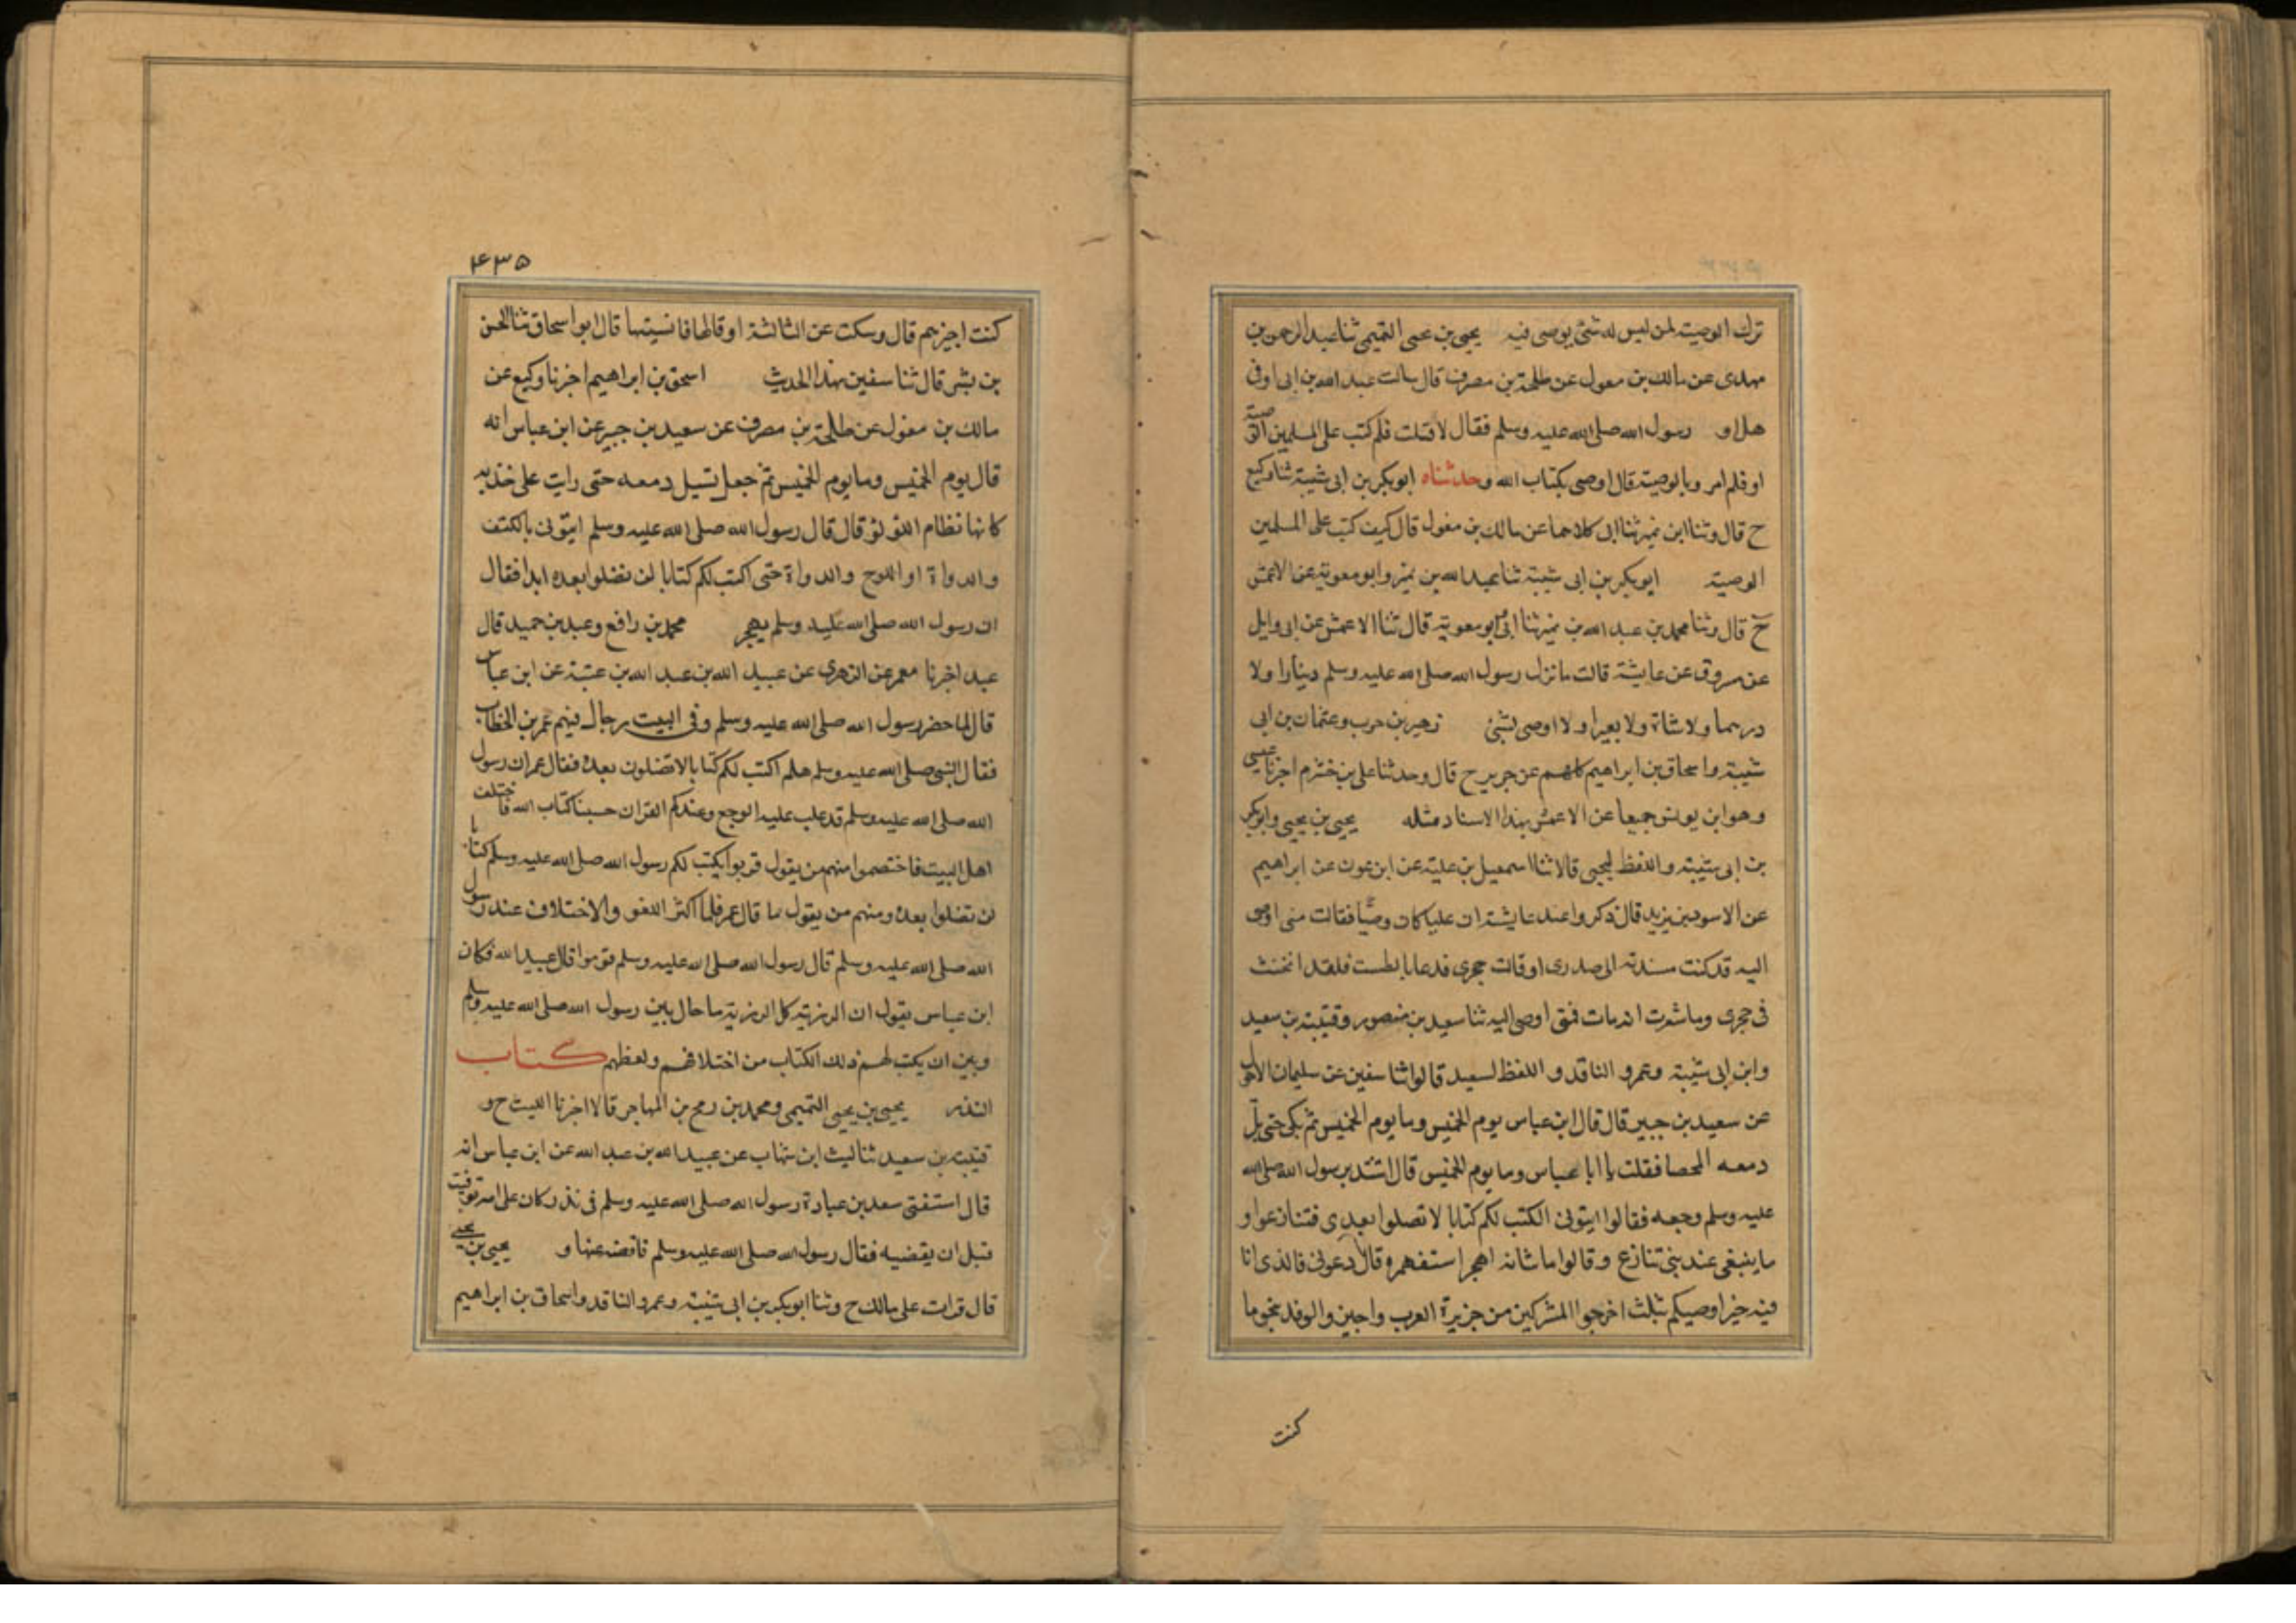 ترك الوصية لمن ليس له شئ يوصى فيه يحيى بن يحيى التميمى ثنا عبد الرحمن بن
مهدى عن مالك بن مغول عن طلحة بن مصرف قال سالت عبد الله بن ابى اوفى
هل او رسول الله صلى الله عليه وسلم فقال لا قلت فلم كتب على المسلمين الوصية
او فلم امر وبالوصية قال اوصى بكتاب الله وحدثناه ابو بكر بن ابى شيبة ثنا وكيع
ح قال وثنا ابن نمير ثنا ابى كلاهما عن مالك بن مغول قال كيف كتب على المسلمين
الوصية ابو بكر بن ابى شيبة ثنا عبد الله بن نمير وابو معوية عن الاعمش
ح قال وثنا محمد بن عبد الله بن نمير ثنا ابى وابو معوية قال ثنا الاعمش عن ابى وايل
عن مسروق عن عايشة قالت ما ترك رسول الله صلى الله عليه وسلم دينارا ولا
درهما ولا شاة ولا بعيرا ولا اوصى بشئ زهير بن حرب وعثمان بن ابى
شيبة واسحاق بن ابراهيم كلهم عن جرير ح قال وحدثنا على بن خشرم اخبرنا عيسى
وهو ابن يونس جميعا عن الاعمش بهذا الاسناد مثله يحيى بن يحيى وابو بكر
بن ابى شيبة واللفظ ليحيى قالا ثنا اسمعيل بن علية عن ابن عون عن ابراهيم
عن الاسود بن يزيد قال ذكروا عند عايشة ان عليا كان وصيا فقالت متى اوصى
اليه قد كنت مسندته الى صدرى او قالت حجرى فدعا بالطست فلقد انخنث
فى حجرى وما شعرت انه مات فمتى اوصى اليه ثنا سعيد بن منصور وقتيبة بن سعيد
وابن ابى شيبة وعمرو الناقد واللفظ لسعيد قالوا ثنا سفين عن سليمان الاحول
عن سعيد بن جبير قال قال ابن عباس يوم الخميس وما يوم الخميس ثم بكى حتى بل
دمعه الحصا فقلت يا ابا عباس وما يوم الخميس قال اشتد برسول الله صلى الله
عليه وسلم وجعه فقالوا ايتونى الكتب لكم كتابا لا تضلوا بعدى فتنازعوا و
ما ينبغى عند بنى تنازع وقالوا ما شانه اهجر استفهمره قال دعونى فالذى انا
فيه خير اوصيكم بثلث اخرجوا المشركين من جزيرة العرب واجيزوا الوفد بنحو ما
كنت
٤٣٥
كنت اجيزهم قال وسكت عن الثالثة او قالها فانسيتها قال ابو اسحاق ثنا الحسن
بن بشر قال ثنا سفين بهذا الحديث اسحق بن ابراهيم اخبرنا وكيع عن
مالك بن مغول عن طلحة بن مصرف عن سعيد بن جبير عن ابن عباس انه
قال يوم الخميس وما يوم الخميس ثم جعل تسيل دمعه حتى رايت على خديه
كانها نظام اللؤلؤ قال قال رسول الله صلى الله عليه وسلم ايتونى بالكتف
والدواة او اللوح والدواة حتى اكتب لكم كتابا لن تضلوا بعده ابدا فقال
ان رسول الله صلى الله عليه وسلم يهجر محمد بن رافع وعبد بن حميد قال
عبد اخبرنا معمر عن الزهرى عن عبيد الله بن عبد الله بن عتبة عن ابن عباس
قال لما حضر رسول الله صلى الله عليه وسلم وفى البيت رجال فيهم عمر بن الخطاب
فقال النبى صلى الله عليه وسلم هلم اكتب لكم كتابا لا تضلون بعده فقال عمر ان رسول
الله صلى الله عليه وسلم قد غلب عليه الوجع وعندكم القران حسبنا كتاب الله فاختلف
اهل البيت فاختصموا منهم من يقول قربوا يكتب لكم رسول الله صلى الله عليه وسلم كتابا
لن تضلوا بعده ومنهم من يقول ما قال عمر فلما اكثر اللغو والاختلاف عند رسول
الله صلى الله عليه وسلم قال رسول الله صلى الله عليه وسلم قوموا قال عبيد الله فكان
ابن عباس يقول ان الرزية كل الرزية ما حال بين رسول الله صلى الله عليه وسلم
وبين ان يكتب لهم ذلك الكتاب من اختلافهم ولغطهم كتاب
النذر يحيى بن يحيى التميمى ومحمد بن رمح بن المهاجر قالا اخبرنا الليث ح و
قتيبة بن سعيد ثنا ليث ابن شهاب عن عبيد الله بن عبد الله عن ابن عباس انه
قال استفتى سعد بن عبادة رسول الله صلى الله عليه وسلم فى نذر كان على امه توفيت
قبل ان يقضيه فقال رسول الله صلى الله عليه وسلم فاقضه عنها و يحيى بن يحيى
قال قرات على مالك ح وثنا ابو بكر بن ابى شيبة وعمرو الناقد واسحاق بن ابراهيم